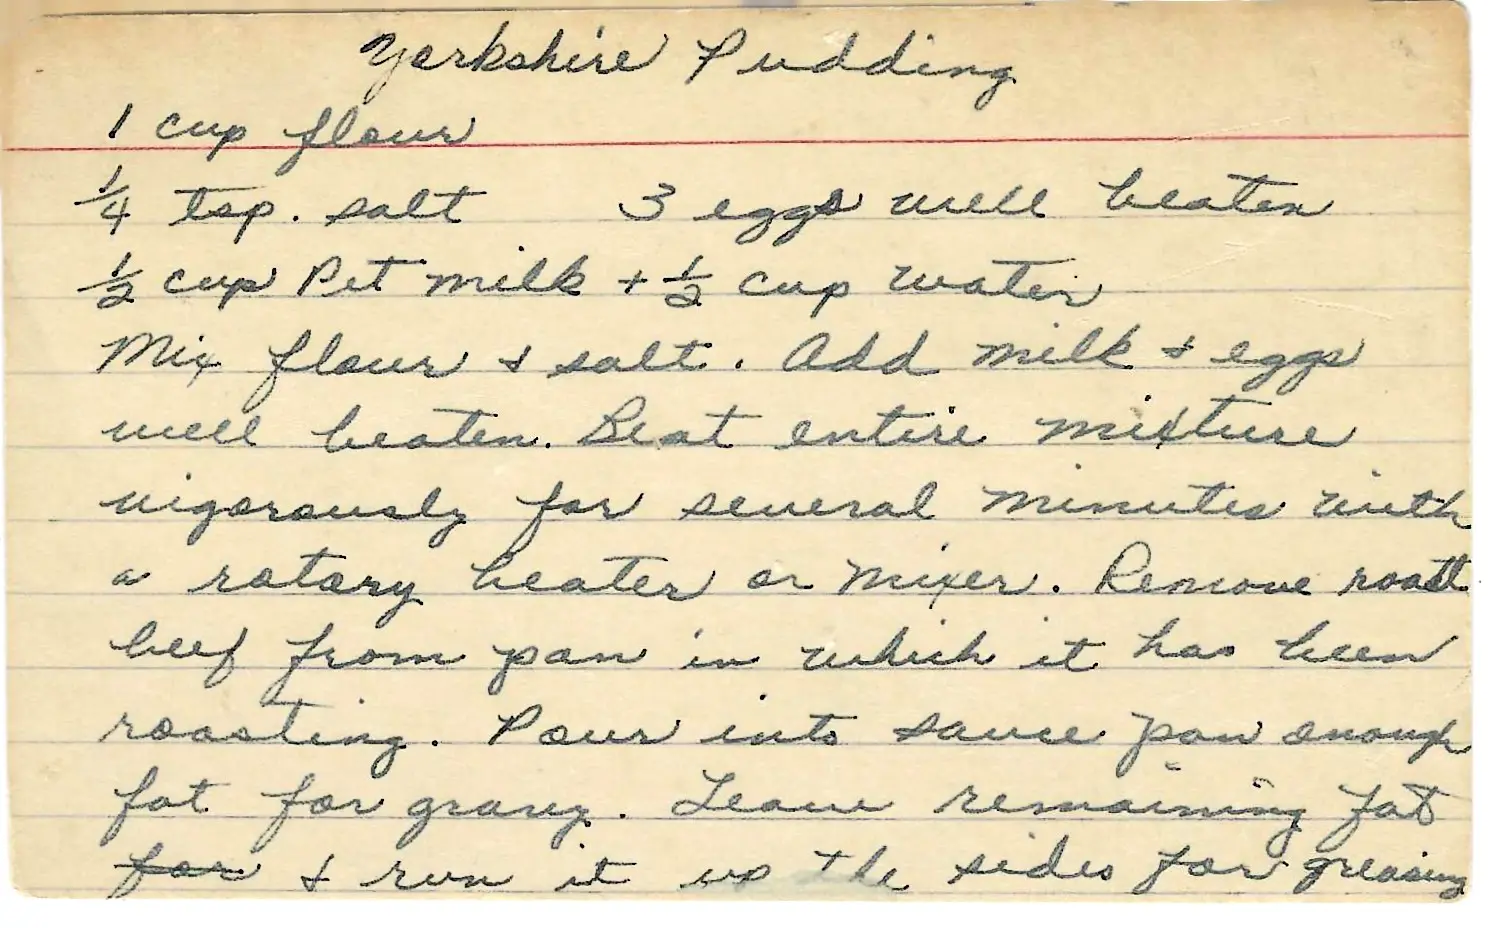 Yorkshire Pudding
1 cup flour
1/4 tsp. salt 3 eggs well beaten
1/2 cup Pet milk + 1/2 cup water
Mix flour & salt. Add milk & eggs
well beaten. Beat entire mixture
vigorously for several minutes with
a rotary beater or mixer. Remove roast
beef from pan in which it has been
roasting. Pour into sauce pan enough
fat for gravy. Leave remaining fat
~~for~~ & run it up the sides for greasing